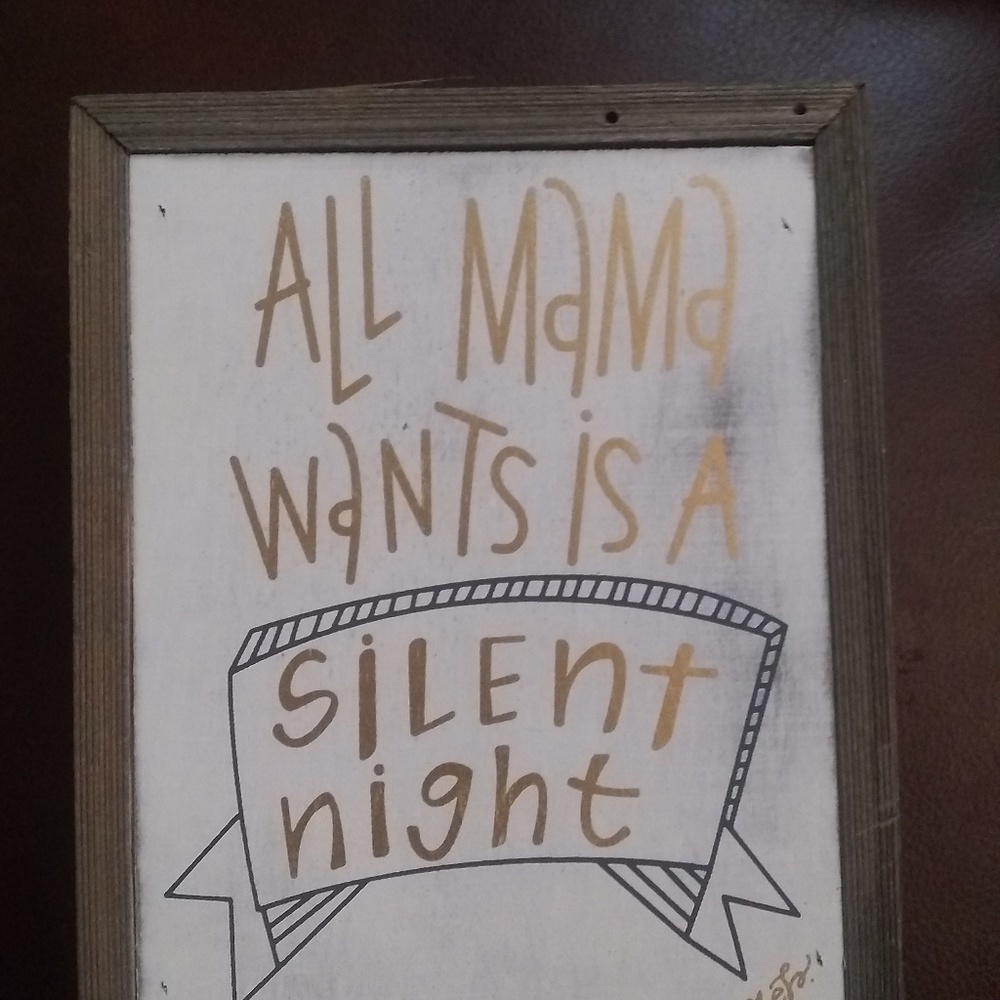 ALL MaMa
WaNTS iS A
SiLENt
night